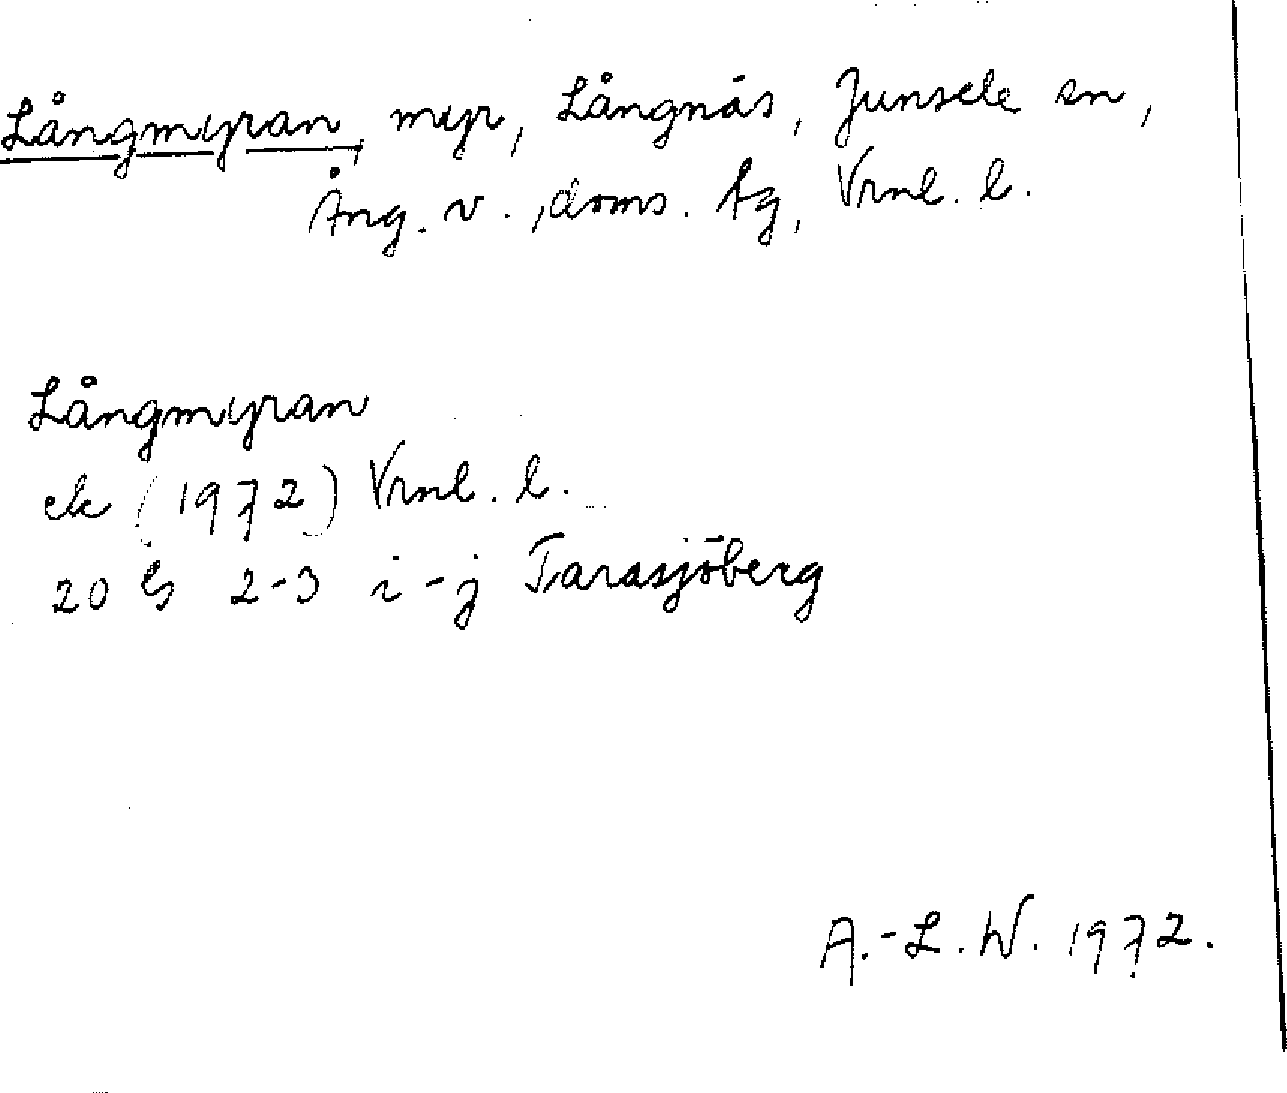 Långmyran, myr, Långnäs, Junsele sn,
Ång. v., doms. tg, Vrnl. l.
Långmyran
ek (1972) Vrnl. l.
20 G 2-3 i-j Tarasjöberg
A.-L. W. 1972.